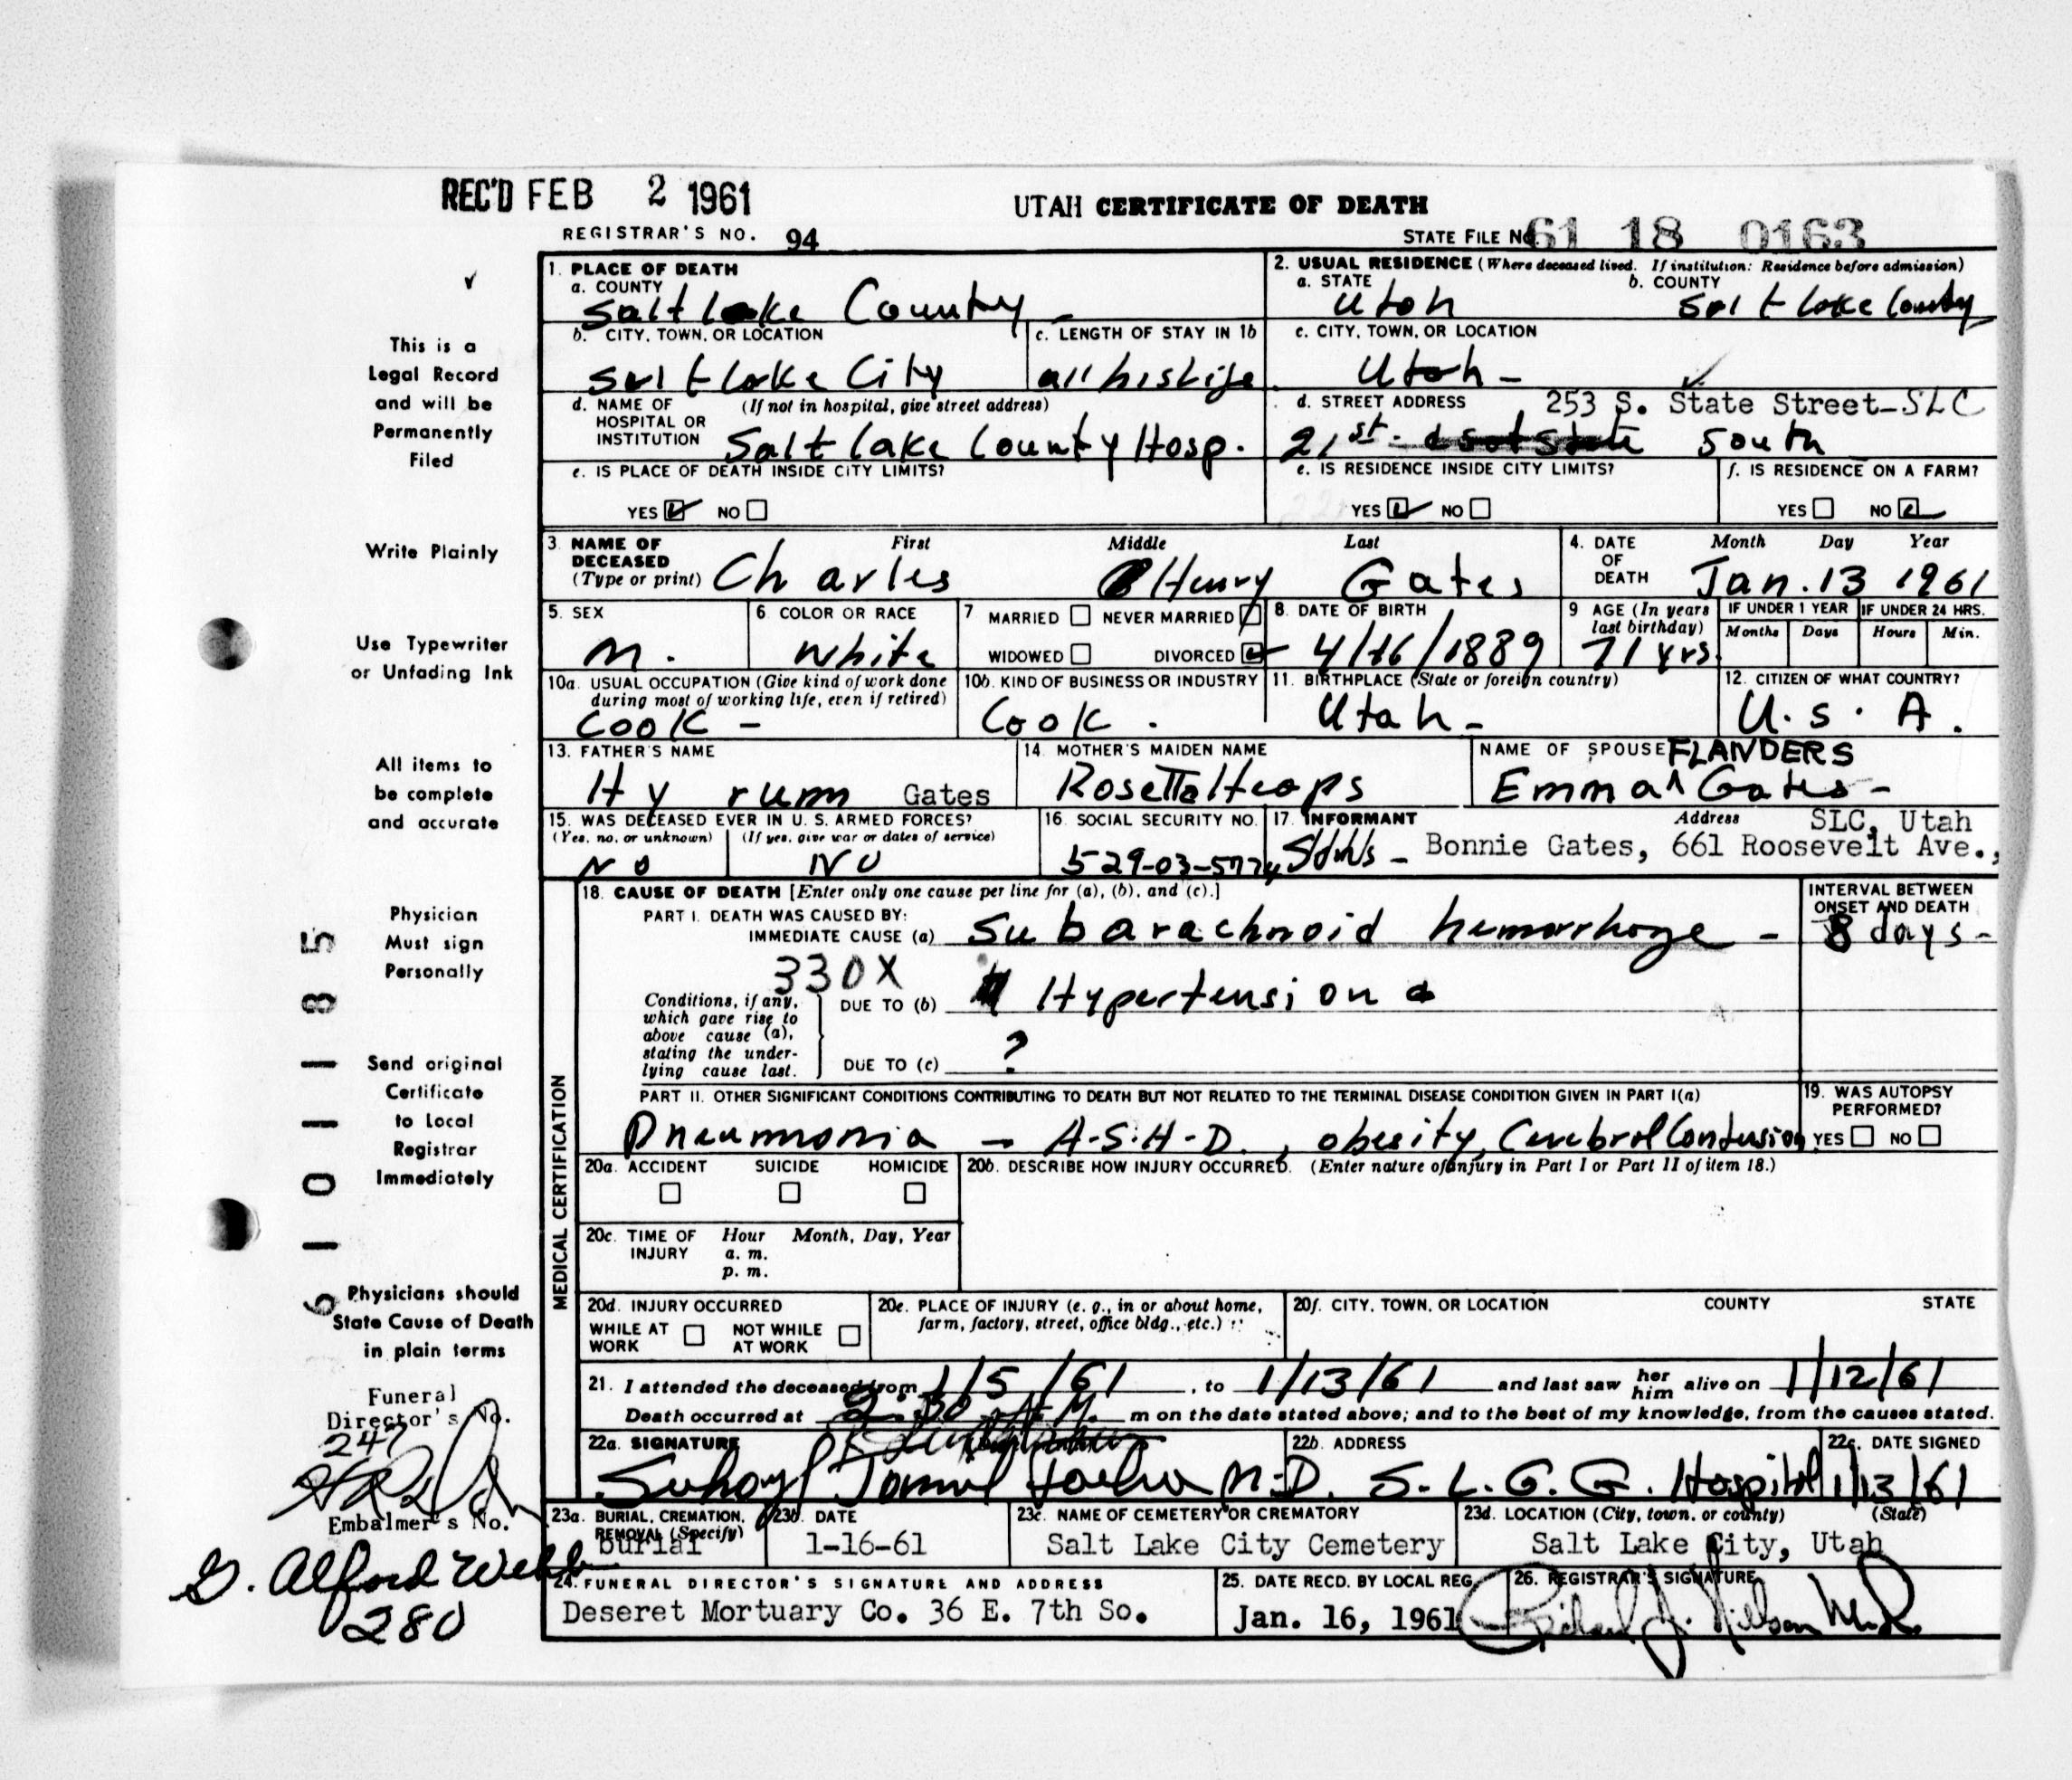 REC'D FEB 2 1961
UTAH CERTIFICATE OF DEATH
REGISTRAR'S NO. 94
STATE FILE NO. 61 18 0163
This is a
Legal Record
and will be
Permanently
Filed
Write Plainly
Use Typewriter
or Unfading Ink
All items to
be complete
and accurate
Physician
Must sign
Personally
Send original
Certificate
to Local
Registrar
Immediately
Physicians should
State Cause of Death
in plain terms
Funeral
Director's No.
247
Embalmer's No.
G. Alford Webb
280
6101185
1. PLACE OF DEATH
a. COUNTY
Salt Lake County
b. CITY, TOWN, OR LOCATION
Salt Lake City
c. LENGTH OF STAY IN 1b
all his Life
d. NAME OF HOSPITAL OR INSTITUTION (If not in hospital, give street address)
Salt Lake County Hosp.
e. IS PLACE OF DEATH INSIDE CITY LIMITS?
YES NO
2. USUAL RESIDENCE (Where deceased lived. If institution: Residence before admission)
a. STATE
Utah
b. COUNTY
Salt Lake County
c. CITY, TOWN, OR LOCATION
Utah -
d. STREET ADDRESS 253 S. State Street-SLC
21st. South
e. IS RESIDENCE INSIDE CITY LIMITS?
YES NO
f. IS RESIDENCE ON A FARM?
YES NO
3. NAME OF DECEASED (Type or print)
First Middle Last
Charles Henry Gates
4. DATE OF DEATH Month Day Year
Jan. 13 1961
5. SEX
M.
6 COLOR OR RACE
White
7 MARRIED NEVER MARRIED
WIDOWED DIVORCED
8. DATE OF BIRTH
4/16/1889
9 AGE (In years last birthday)
71 yrs.
IF UNDER 1 YEAR
Months Days
IF UNDER 24 HRS.
Hours Min.
10a. USUAL OCCUPATION (Give kind of work done during most of working life, even if retired)
Cook -
10b. KIND OF BUSINESS OR INDUSTRY
Cook .
11. BIRTHPLACE (State or foreign country)
Utah -
12. CITIZEN OF WHAT COUNTRY?
U.S.A.
13. FATHER'S NAME
Hyrum Gates
14. MOTHER'S MAIDEN NAME
Rosetta Heaps
NAME OF SPOUSE FLANDERS
Emma ^ Gates -
15. WAS DECEASED EVER IN U. S. ARMED FORCES?
(Yes, no, or unknown) (If yes, give war or dates of service)
NO NO
16. SOCIAL SECURITY NO.
529-03-5774
17. INFORMANT Address
SLC, Utah
Bonnie Gates, 661 Roosevelt Ave.,
MEDICAL CERTIFICATION
18. CAUSE OF DEATH [Enter only one cause per line for (a), (b), and (c).]
PART I. DEATH WAS CAUSED BY:
IMMEDIATE CAUSE (a) Subarachnoid hemorrhage -
INTERVAL BETWEEN ONSET AND DEATH
8 days -
330X
Conditions, if any, which gave rise to above cause (a), stating the underlying cause last.
DUE TO (b) Hypertension
DUE TO (c) ?
PART II. OTHER SIGNIFICANT CONDITIONS CONTRIBUTING TO DEATH BUT NOT RELATED TO THE TERMINAL DISEASE CONDITION GIVEN IN PART I(a)
Pneumonia - A.S.H.D., obesity, Cerebral Contusion
19. WAS AUTOPSY PERFORMED?
YES NO
20a. ACCIDENT SUICIDE HOMICIDE
20b. DESCRIBE HOW INJURY OCCURRED. (Enter nature of injury in Part I or Part II of item 18.)
20c. TIME OF INJURY Hour Month, Day, Year
a. m.
p. m.
20d. INJURY OCCURRED
WHILE AT WORK NOT WHILE AT WORK
20e. PLACE OF INJURY (e. g., in or about home, farm, factory, street, office bldg., etc.)
20f. CITY, TOWN, OR LOCATION COUNTY STATE
21. I attended the deceased from 1/5/61, to 1/13/61 and last saw her him alive on 1/12/61
Death occurred at 2:30 A.M. m on the date stated above; and to the best of my knowledge, from the causes stated.
22a. SIGNATURE
M.D.
22b. ADDRESS
S.L.G.G. Hospital
22c. DATE SIGNED
1/13/61
23a. BURIAL, CREMATION, REMOVAL (Specify)
Burial
23b. DATE
1-16-61
23c. NAME OF CEMETERY OR CREMATORY
Salt Lake City Cemetery
23d. LOCATION (City, town, or county) (State)
Salt Lake City, Utah
24. FUNERAL DIRECTOR'S SIGNATURE AND ADDRESS
Deseret Mortuary Co. 36 E. 7th So.
25. DATE RECD. BY LOCAL REG.
Jan. 16, 1961
26. REGISTRAR'S SIGNATURE